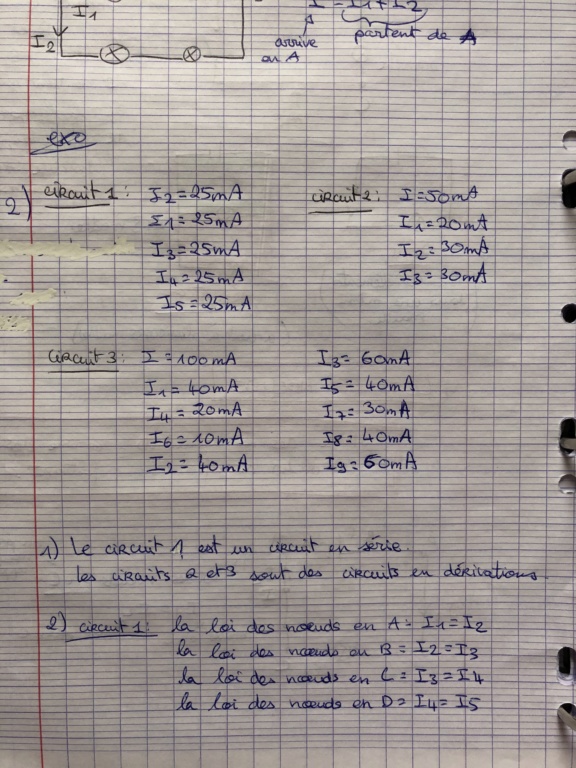 I1
I2
I = I1+I2
arrive
en A
partent de A
exo
2) circuit 1: I2=25mA
I1=25mA
I3=25mA
I4=25mA
I5=25mA
circuit 2: I=50mA
I1=20mA
I2=30mA
I3=30mA
Circuit 3: I=100mA
I1=40mA
I4=20mA
I6=10mA
I2=40mA
I3=60mA
I5=40mA
I7=30mA
I8=40mA
I9=60mA
1) Le circuit 1 est un circuit en série.
les circuits 2 et 3 sont des circuits en dérivations.
2) circuit 1: la loi des nœuds en A = I1=I2
la loi des nœuds en B = I2=I3
la loi des nœuds en C = I3=I4
la loi des nœuds en D = I4=I5